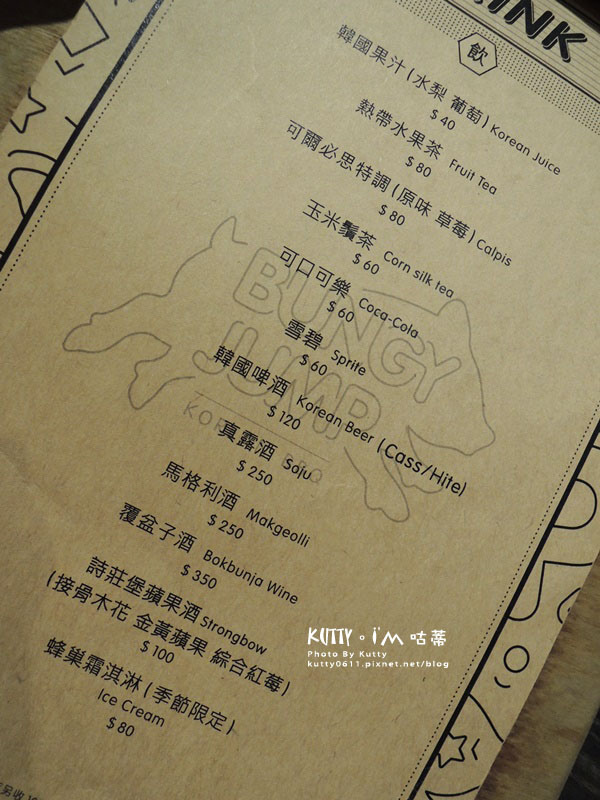 INK
飲
韓國果汁(水梨 葡萄) Korean Juice
$40
熱帶水果茶 Fruit Tea
$80
可爾必思特調(原味 草莓) Calpis
$80
玉米鬚茶 Corn silk tea
$60
可口可樂 Coca-Cola
$60
雪碧 Sprite
$60
韓國啤酒 Korean Beer (Cass/Hite)
$120
真露酒 Soju
$250
馬格利酒 Makgeolli
$250
覆盆子酒 Bokbunja Wine
$350
詩莊堡蘋果酒 Strongbow
(接骨木花 金黃蘋果 綜合紅莓)
$100
蜂巢霜淇淋(季節限定)
Ice Cream
$80
BUNGY
JUMP
KUTTY。I'M 咕蒂
Photo By Kutty
kutty0611.pixnet.net/blog